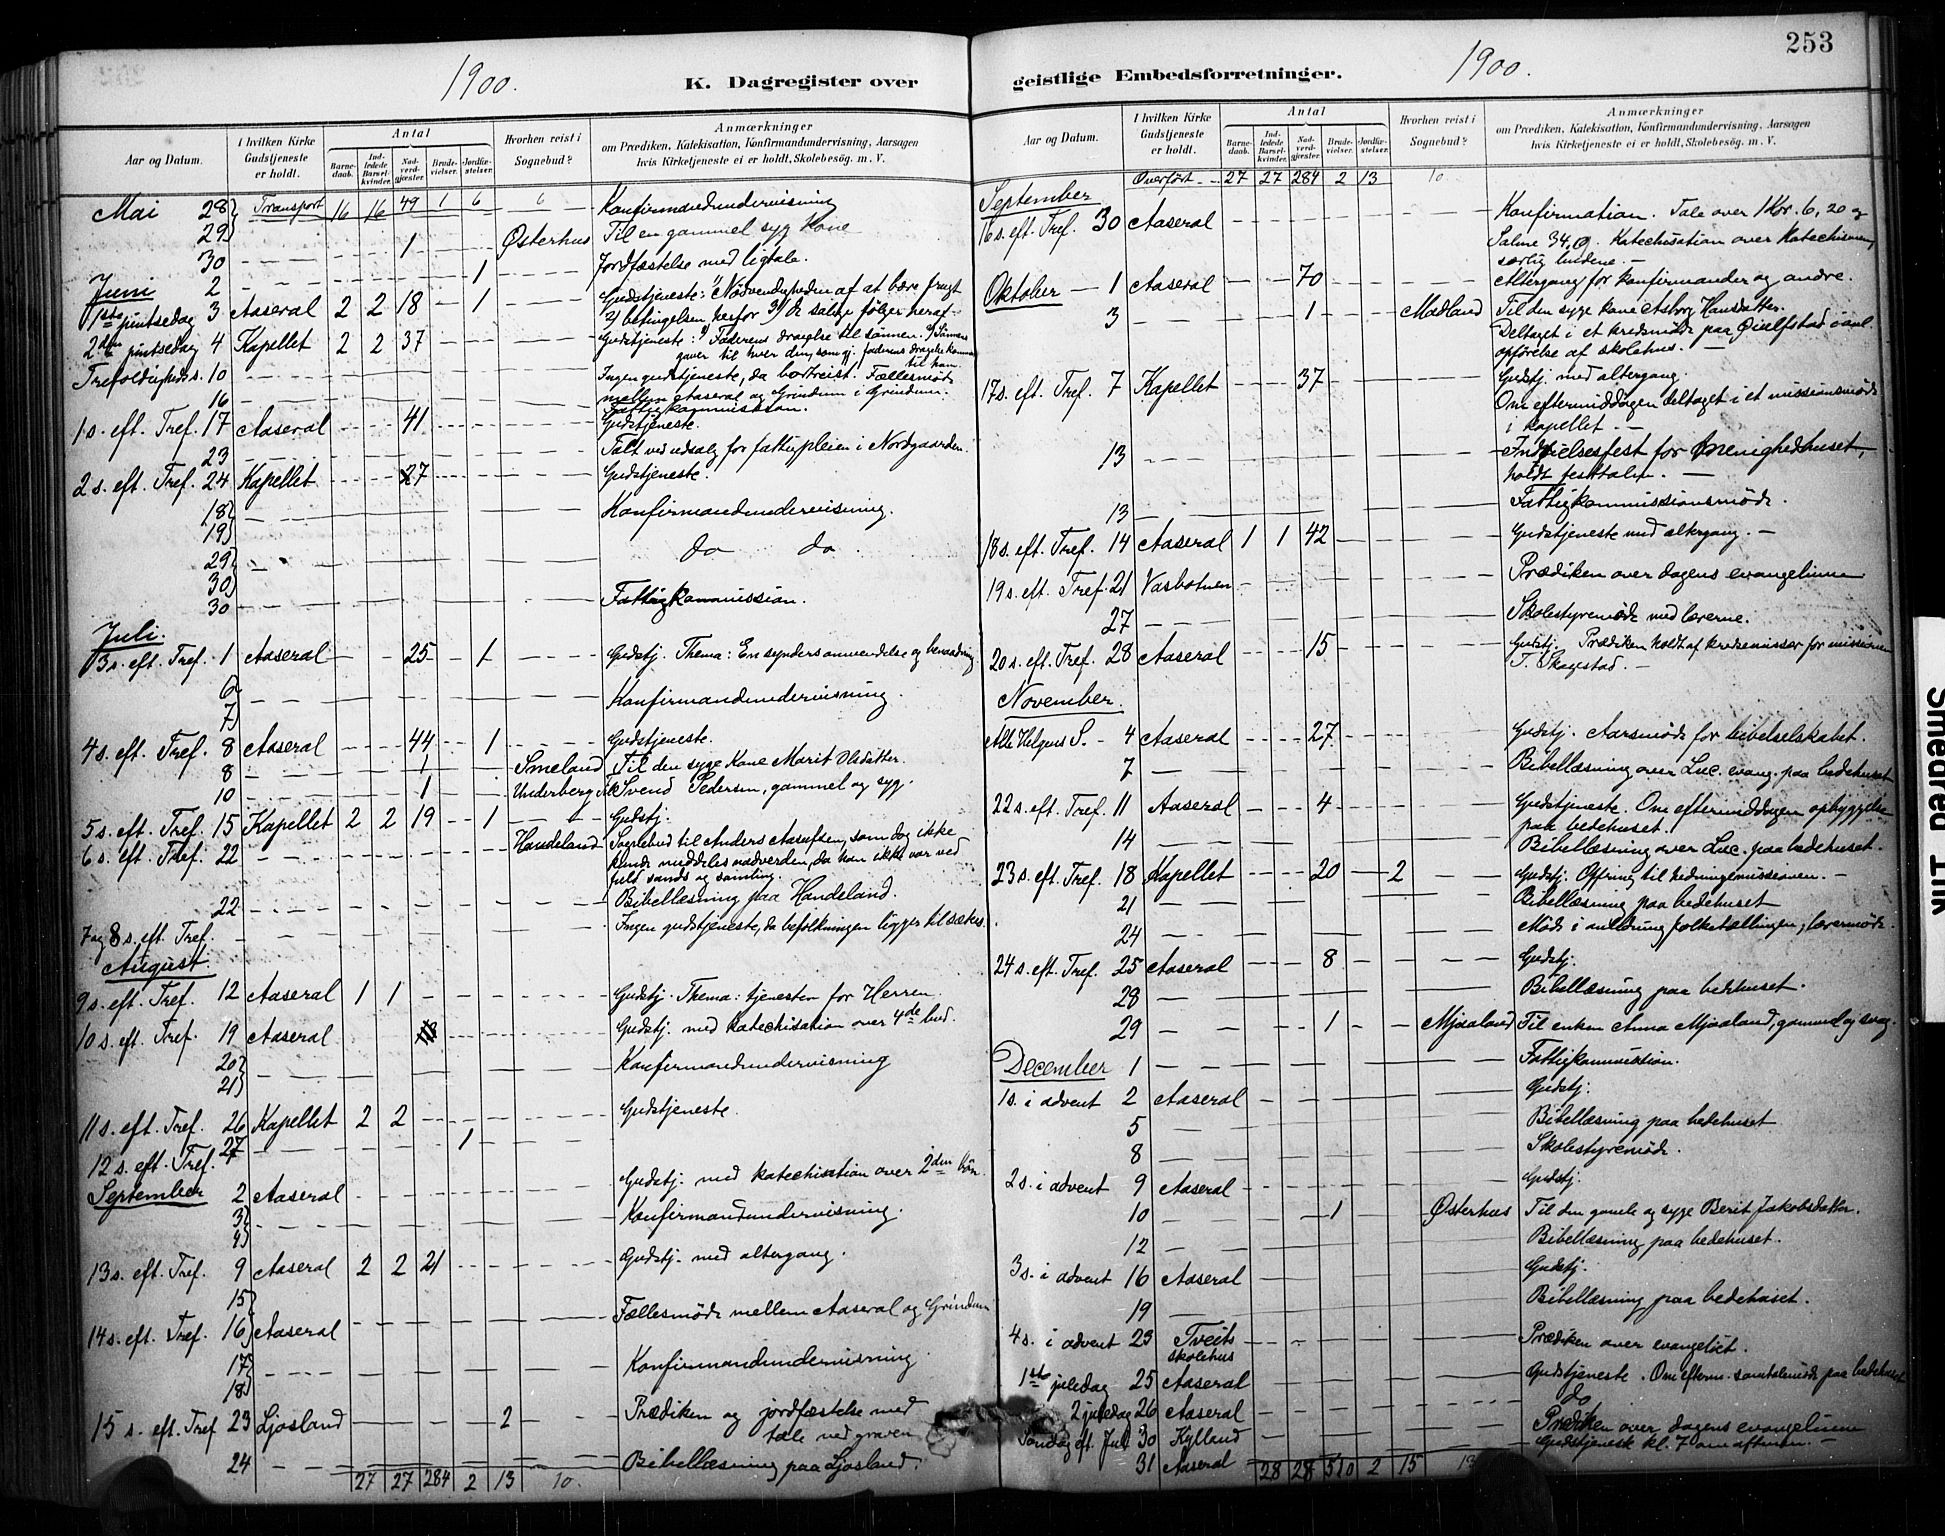 253
1900.
K. Dagregister over
Aar og Datum.
I hvilken Kirke Gudstjeneste er holdt.
Antal
Barnedaab.
Indledede Barselkvinder.
Nadverdgjæster.
Brudevielser.
Jordfæstelser.
Hvorhen reist i Sognebud?
Anmærkninger
om Prædiken, Katekisation, Konfirmandundervisning, Aarsagen
hvis Kirketjeneste ei er holdt, Skolebesøg. m. V.
Mai 28 Transport 16 16 49 1 6 6 Konfirmandundervisning
29
30 1 Østerhus Til en gammel syg Kone
Juni 2 1 Jordfæstelse med ligtale.
1ste pintsedag 3 Aaseral 2 2 18 1 Gudstjeneste: 1) Nødvendigheden af at bære frugt
2) betingelsen herfor 3) De salige følger heraf.
2den pintsedag 4 Kapellet 2 2 37 Gudstjeneste: 1) Faderens dragelse til sønnen. 2) Sønnens
gaver til hver den, som gj. faderens dragelse kommer
til ham
Trefoldigheds s. 10 Ingen gudstjeneste, da bortreist. Fællesmøde
mellem Aaseral og Grindum i Grindum.
16 Fattigkommission.
1 s. eft. Tref. 17 Aaseral 41 Gudstjeneste.
23 Talt ved udsalg for fattigpleien i Nordgaarden.
2 s. eft. Tref. 24 Kapellet 27 Gudstjeneste.
18 Konfirmandundervisning.
19
29 do do
30
30 Fattigkommission.
Juli.
3 s. eft. Tref. 1 Aaseral 25 1 Gudstj. Thema: En synders omvendelse og benaadning
6 Konfirmandundervisning.
7
4 s. eft. Tref. 8 Aaseral 44 1 Gudstjeneste.
8 1 Smeland Til den syge Kone Marit Olsdatter.
10 1 Underberg Til Svend Pedersen, gammel og syg.
5 s. eft. Tref. 15 Kapellet 2 2 19 1 Gudstj.
6 s. eft. Tref. 22 Handeland Sognebud til Anders Aanesen, som dog ikke
kunde meddeles nadverden, da han ikke var ved
fuld sands og samling.
22 Bibellæsning paa Handeland.
7 og 8 s. eft. Tref. Ingen gudstjeneste, da befolkningen ligger til sæters.
August.
9 s. eft. Tref. 12 Aaseral 1 1 Gudstj. Thema: tjenesten for Herren.
10 s. eft. Tref. 19 Aaseral Gudstj. med katechisation over 4de bud.
20 Konfirmandundervisning
21
11 s. eft. Tref. 26 Kapellet 2 2 Gudstjeneste.
27 1
12 s. eft. Tref.
September 2 Aaseral Gudstj. med katechisation over 2den bøn.
3 Konfirmandundervisning.
4
13 s. eft. Tref. 9 Aaseral 2 2 21 Gudstj. med altergang.
15 Fællesmøde mellem Aaseral og Grindum
14 s. eft. Tref. 16 Aaseral
17 Konfirmandundervisning.
18
15 s. eft. Tref 23 Ljosland 2 Prædiken og jordfæstelse med
tale ved graven
24 Bibellæsning paa Ljosland.
27 27 284 2 13 10.
geistlige Embedsforretninger.
1900.
Aar og Datum.
I hvilken Kirke Gudstjeneste er holdt.
Antal
Barnedaab.
Indledede Barselkvinder.
Nadverdgjæster.
Brudevielser.
Jordfæstelser.
Hvorhen reist i Sognebud?
Anmærkninger
om Prædiken, Katekisation, Konfirmandundervisning, Aarsagen
hvis Kirketjeneste ei er holdt, Skolebesøg. m. V.
September Overført 27 27 284 2 13 10
16 s. eft. Tref. 30 Aaseral Konfirmation. Tale over 1 Kor. 6, 20 og
Salme 34, 9. Katechisation over Katechismen,
særlig budene.
Oktober 1 Aaseral 70 Altergang for konfirmander og andre.
3 1 Madland Til den syge kone Asborg Hansdatter.
Deltaget i et kredsmøde paa Øialfstad i anl.
opførelse af skolehus.
17 s. eft. Tref. 7 Kapellet 37 Gudstj. med altergang.
Om eftermiddagen deltaget i et missionsmøde
i kapellet.
13 Indvielsesfest for Enighedhuset,
holdt festtalen.
13 Fattigkommissionsmøde.
18 s. eft. Tref. 14 Aaseral 1 1 42 Gudstjeneste med altergang.
19 s. eft. Tref. 21 Vasbotnen Prædiken over dagens evangelium
27 Skolestyremøde med lærerne.
20 s. eft. Tref. 28 Aaseral 15 Gudstj. Prædiken holdt af kredsemissær for missionen
T. Skagestad.
November.
Alle Helgens S. 4 Aaseral 27 Gudstj. Aarsmøde for bibelselskabet.
7 Bibellæsning over Luc. evang. paa bedehuset
22 s. eft. Tref. 11 Aaseral 4 Gudstjeneste. Om eftermiddagen opbyggelse
paa bedehuset.
14 Bibellæsning over Luc. paa bedehuset.
23 s. eft. Tref. 18 Kapellet 20 2 Gudstj. Offring til hedningemissionen.
21 Bibellæsning paa bedehuset
24 Møde i anledning folketællingen; lærermøde.
24 s. eft. Tref. 25 Aaseral 8 Gudstj.
28 Bibellæsning paa bedehuset.
29 1 Mjaaland Til enken Anna Mjaaland, gammel og svag.
December 1 Fattigkommission.
1 s. i advent 2 Aaseral Gudstj.
5 Bibellæsning paa bedehuset
8 Skolestyremøde.
2 s. i advent 9 Aaseral Gudstj.
10 1 Østerhus Til den gamle og syge Berit Jakobsdatter.
12 Bibellæsning paa bedehuset.
3 s. i advent 16 Aaseral Gudstj.
19 Bibellæsning paa bedehuset.
4 s. i advent 23 Tveits skolehus Prædiken over evangeliet.
1ste juledag 25 Aaseral Gudstjeneste. Om efterm. samtalemøde paa bedehuset
2 juledag 26 Aaseral do
Søndag eft. Jul 30 Kylland Prædiken over dagens evangelium
31 Aaseral Gudstjeneste kl. 7 om aftenen.
28 28 510 2 15
Smeared Ink